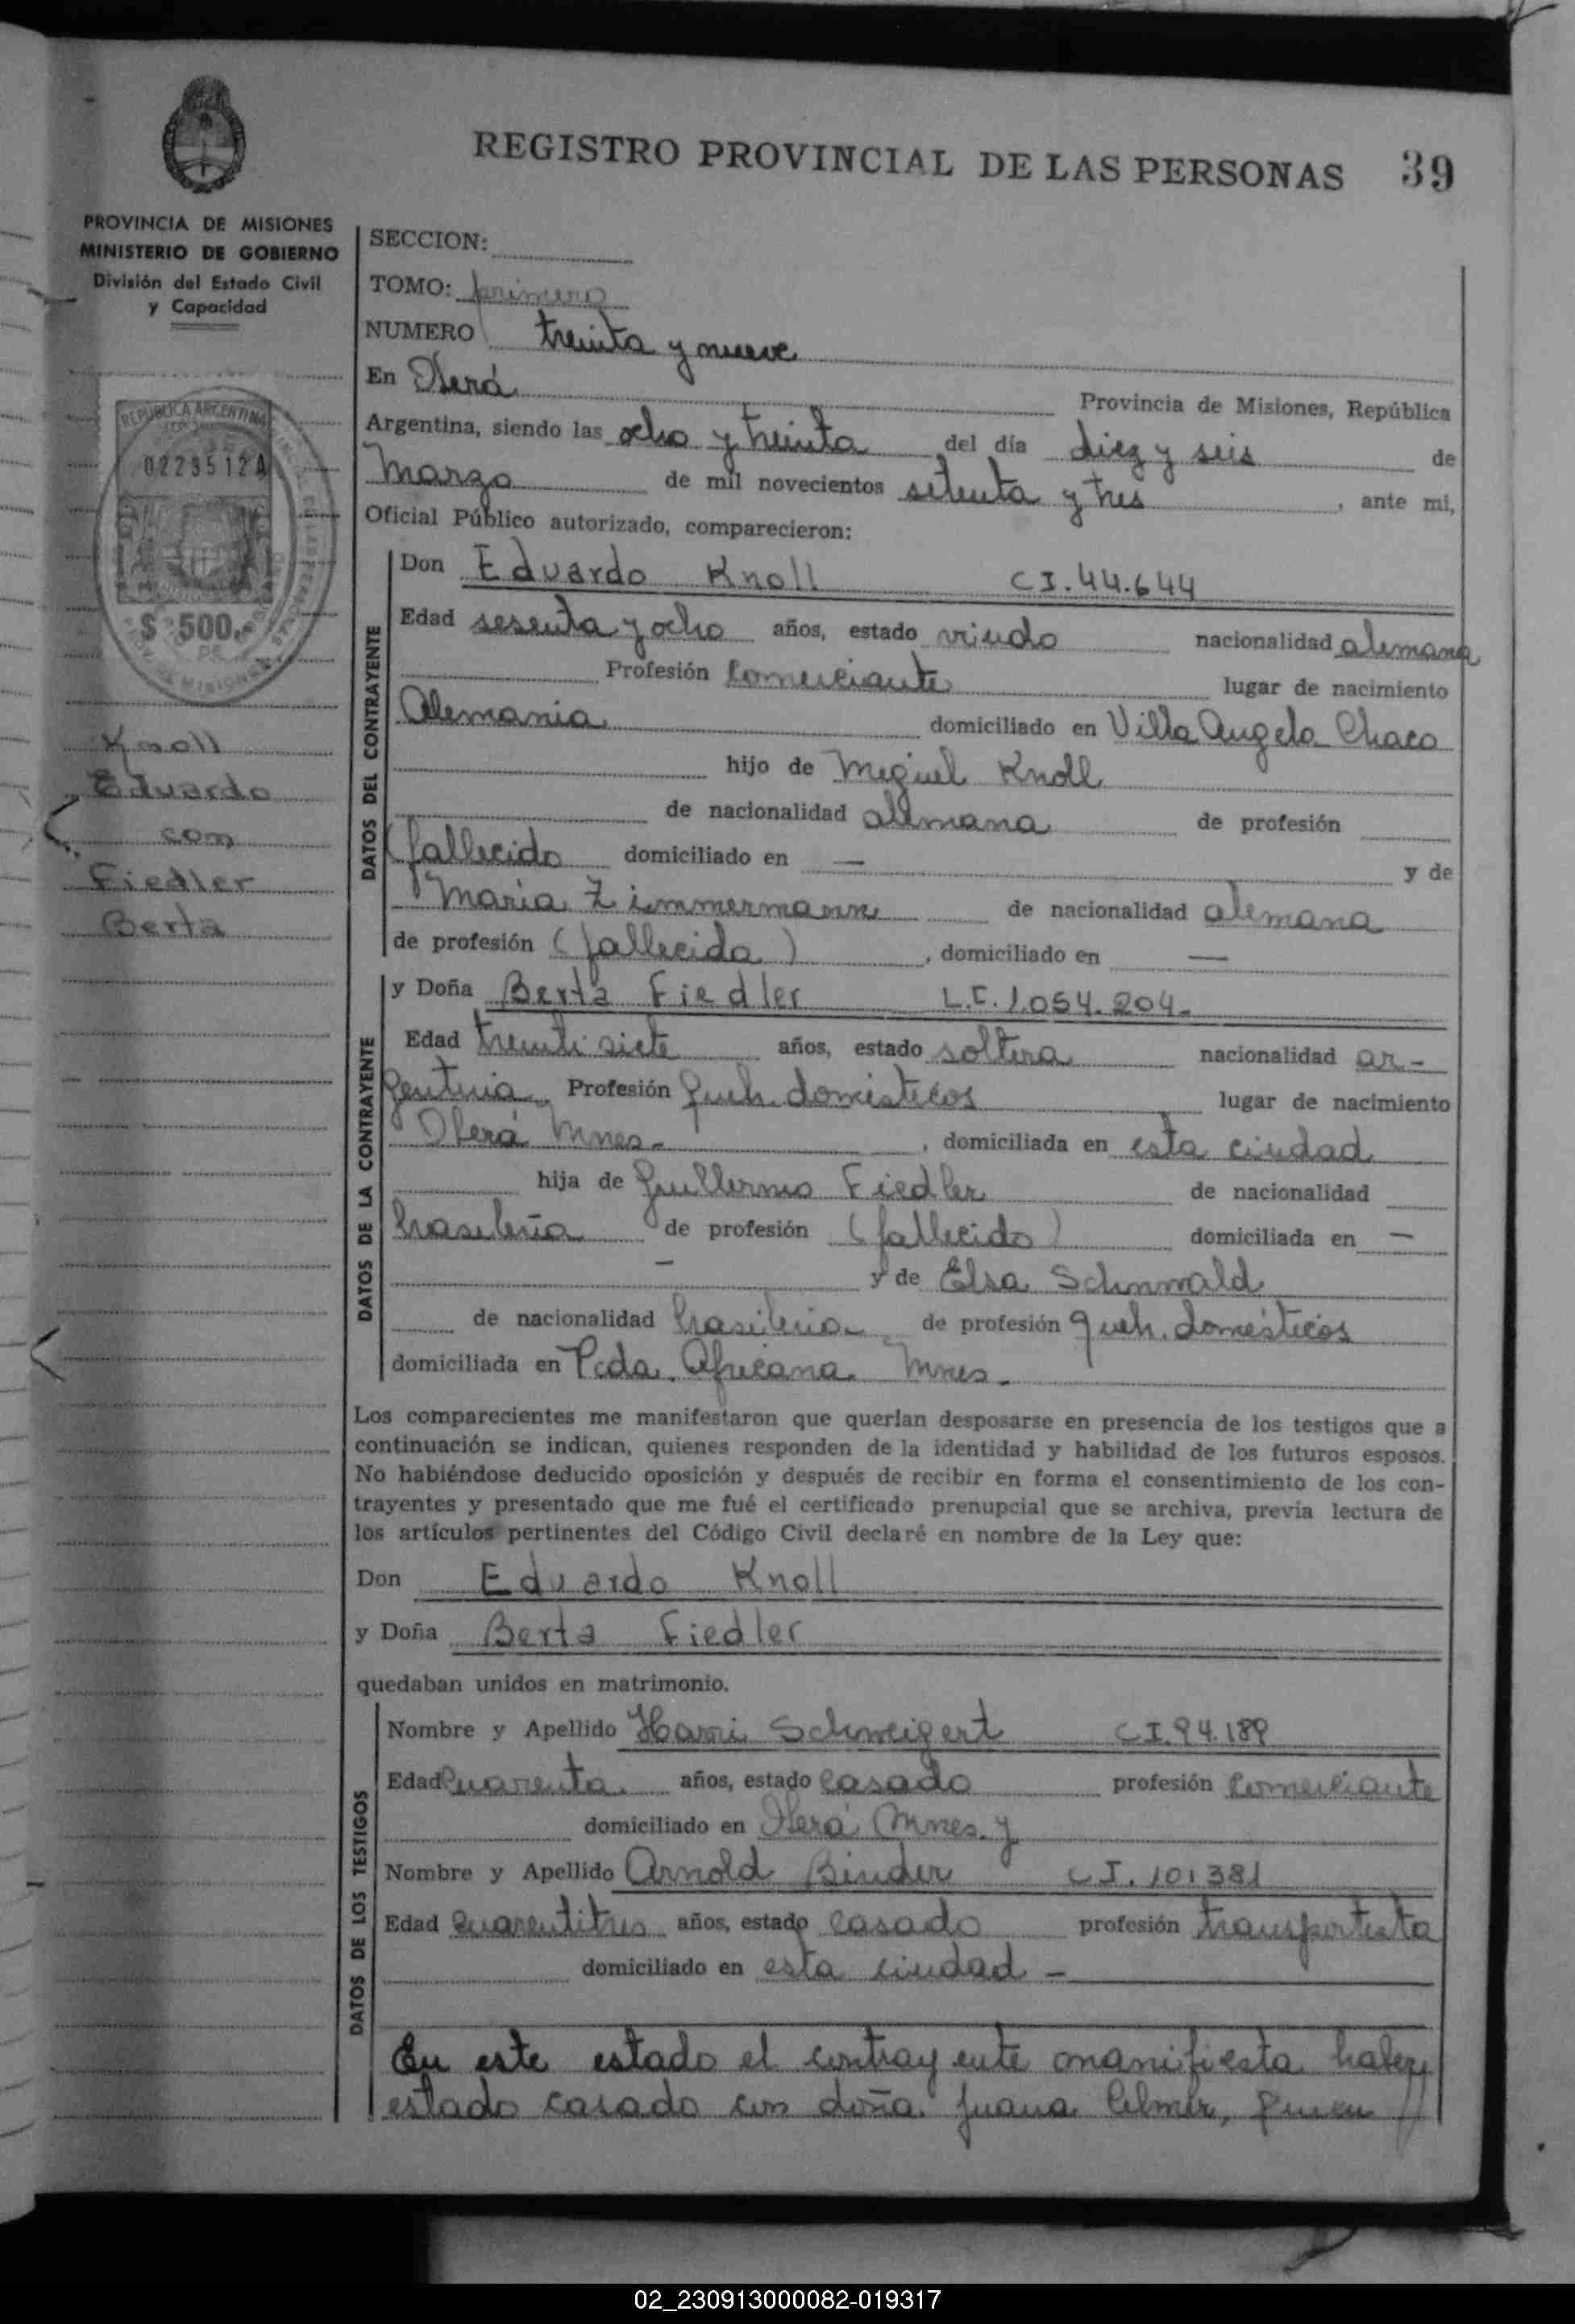 REGISTRO PROVINCIAL DE LAS PERSONAS 39
PROVINCIA DE MISIONES
MINISTERIO DE GOBIERNO
División del Estado Civil
y Capacidad
REPUBLICA ARGENTINA
0223512A
$ 500.-
Knoll
Eduardo
con
Fiedler
Berta
SECCION:
TOMO: primero
NUMERO treinta y nueve
En Oberá Provincia de Misiones, República
Argentina, siendo las ocho y treinta del día diez y seis de
Marzo de mil novecientos setenta y tres, ante mi,
Oficial Público autorizado, comparecieron:
DATOS DEL CONTRAYENTE
Don Eduardo Knoll CI. 44.644
Edad sesenta y ocho años, estado viudo nacionalidad alemana
Profesión Comerciante lugar de nacimiento
Alemania domiciliado en Villa Angela Chaco
hijo de Miguel Knoll
de nacionalidad alemana de profesión
(fallecido domiciliado en — y de
Maria Zimmermann de nacionalidad alemana
de profesión (fallecida), domiciliado en —
DATOS DE LA CONTRAYENTE
y Doña Berta Fiedler L.C. 1.054.204-
Edad treinti siete años, estado soltera nacionalidad ar-
gentina Profesión queh. domésticos lugar de nacimiento
Oberá Mnes-, domiciliada en esta ciudad
hija de Guillermo Fiedler de nacionalidad
brasileña de profesión (fallecido) domiciliada en —
— y de Elsa
de nacionalidad brasileña de profesión queh. domésticos
domiciliada en Pcda. Africana Mnes-
Los comparecientes me manifestaron que querían desposarse en presencia de los testigos que a
continuación se indican, quienes responden de la identidad y habilidad de los futuros esposos.
No habiéndose deducido oposición y después de recibir en forma el consentimiento de los con-
trayentes y presentado que me fué el certificado prenupcial que se archiva, previa lectura de
los artículos pertinentes del Código Civil declaré en nombre de la Ley que:
Don Eduardo Knoll
y Doña Berta Fiedler
quedaban unidos en matrimonio.
DATOS DE LOS TESTIGOS
Nombre y Apellido Harri Schweigert CI. 94.189
Edad Cuarenta años, estado casado profesión Comerciante
domiciliado en Oberá Mnes. y
Nombre y Apellido Arnold Binder CI. 101381
Edad Cuarentitres años, estado casado profesión transportista
domiciliado en esta ciudad -
En este estado el contrayente manifiesta haber
estado casado con doña Juana
02_230913000082-019317